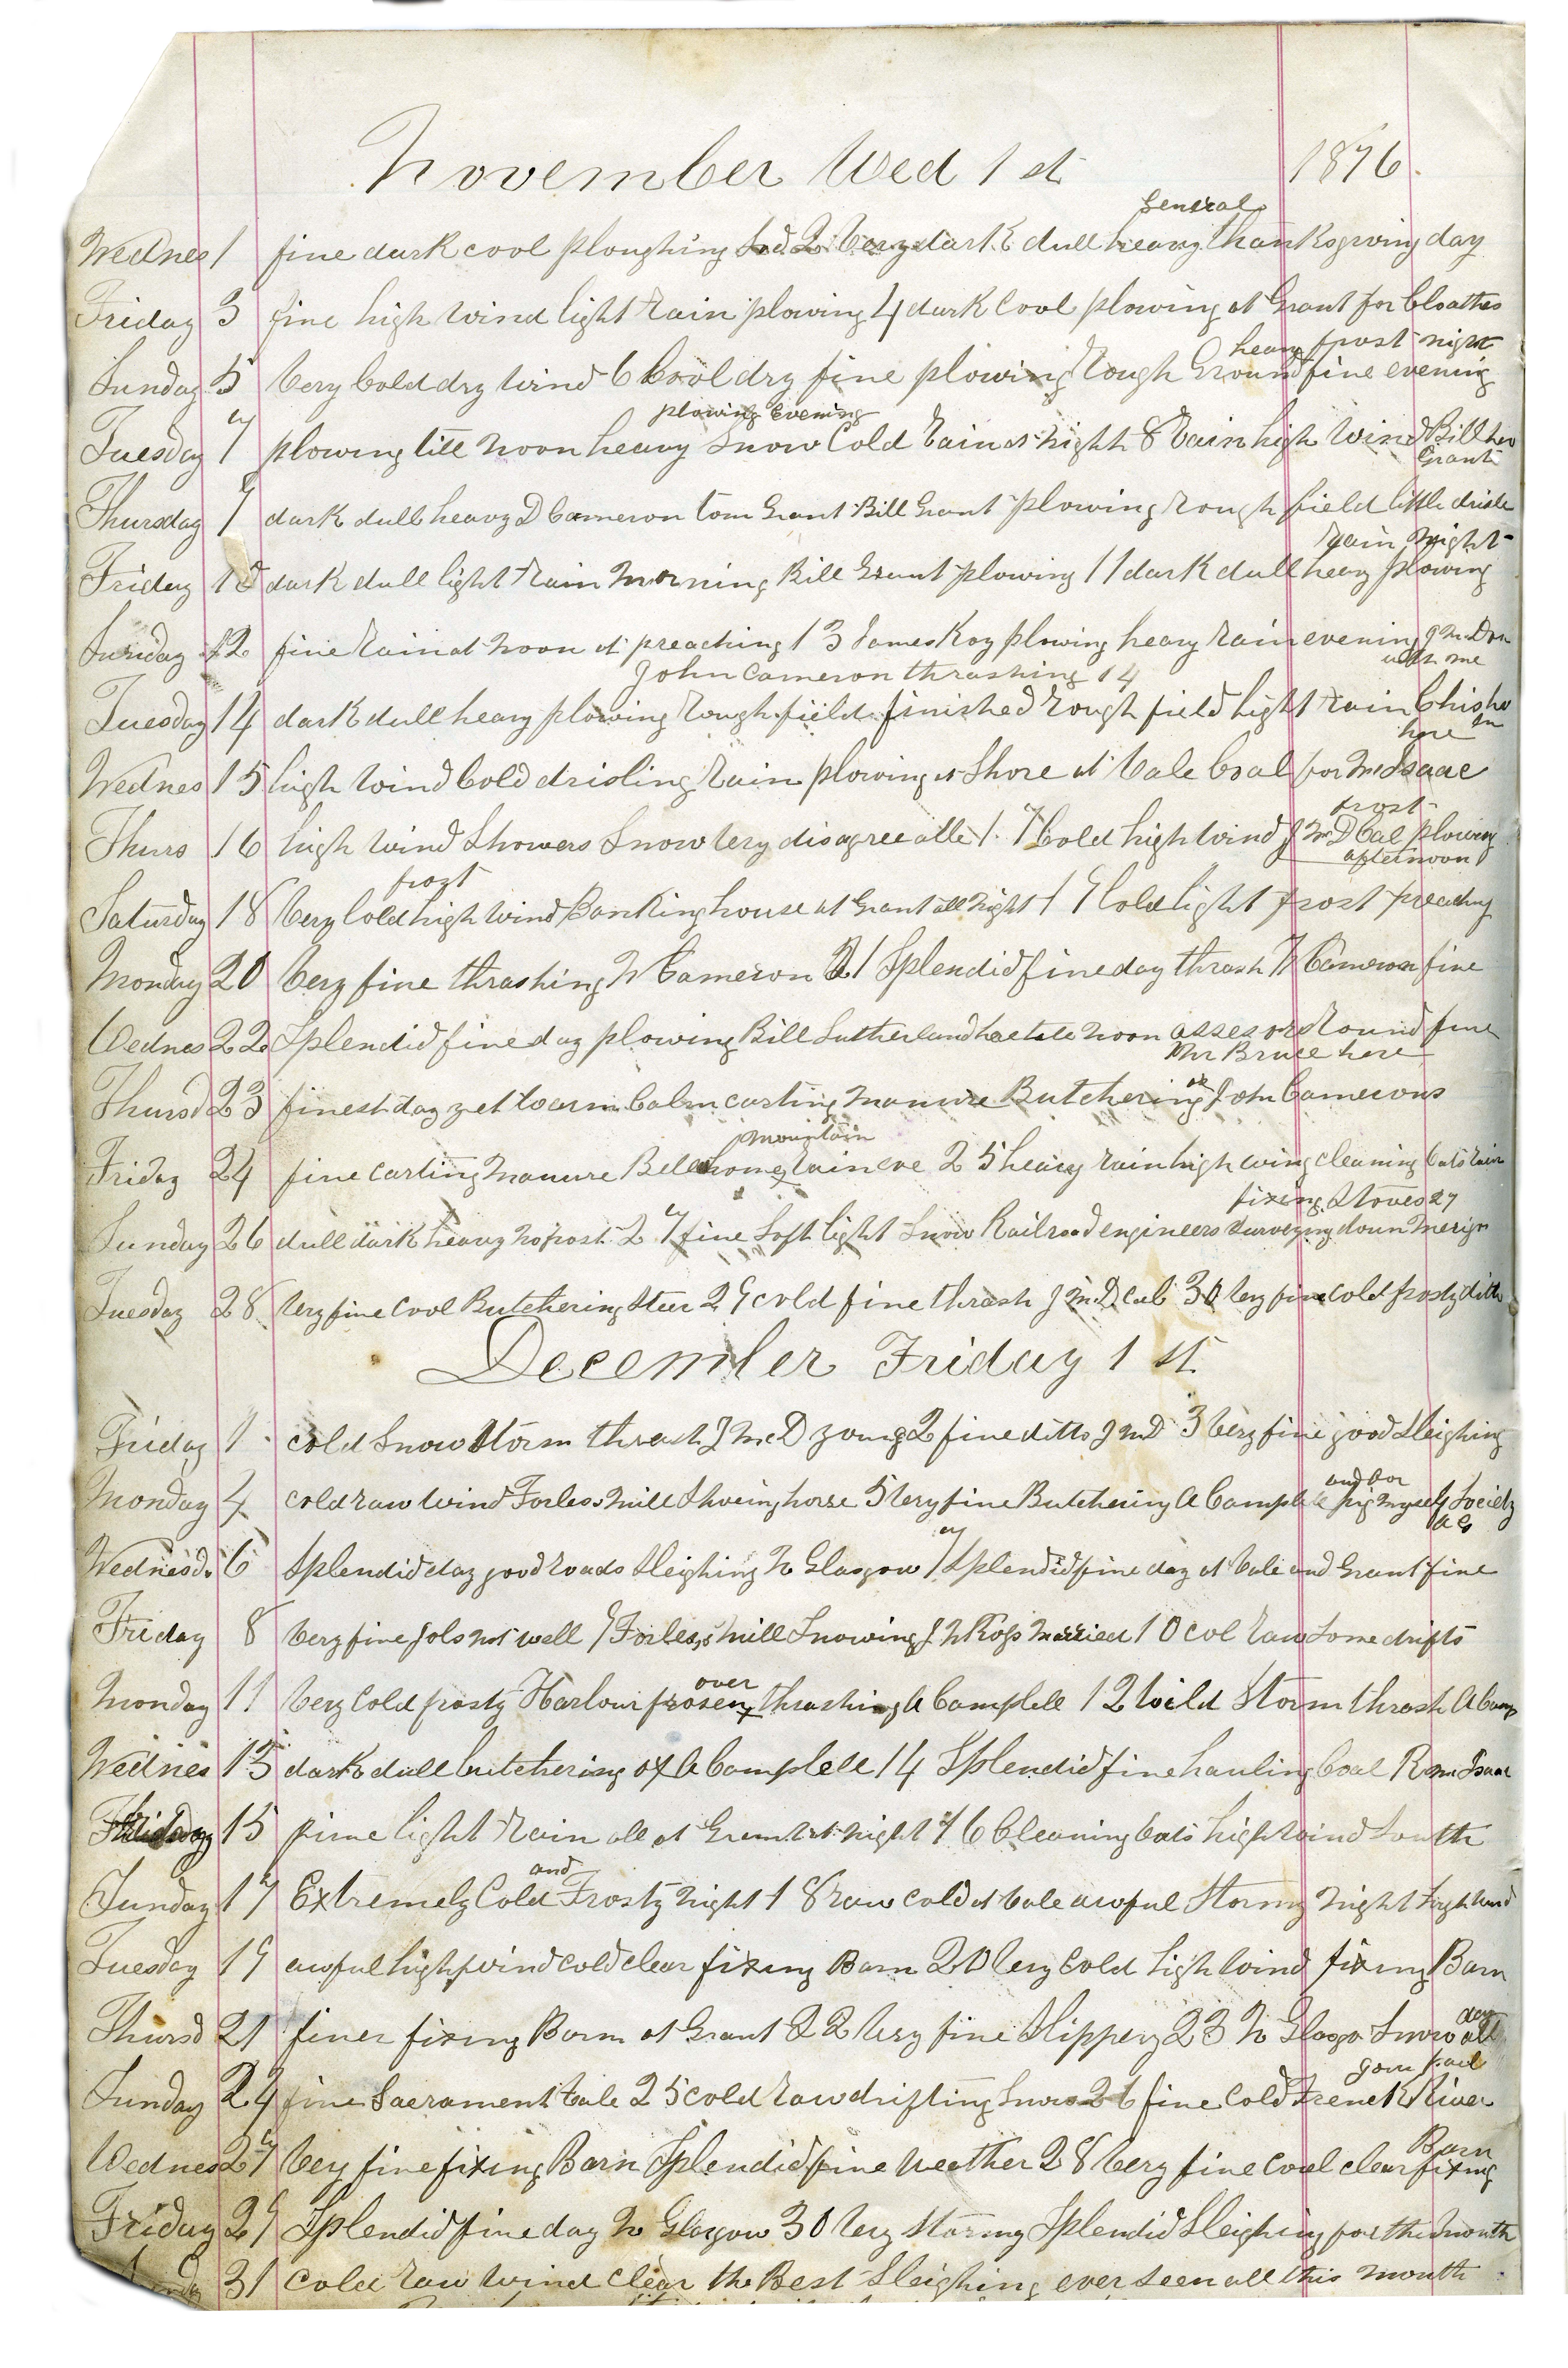 November Wed 1 st 1876.
General
Wednes 1 fine dark cool ploughing 2 very dark dull heavy thanksgiving day
Friday 3 fine high wind light rain plowing 4 dark Cool plowing at Grant for Cloathes
heavy frost night
Sunday 5 Very Cold dry wind 6 Cool dry fine plowing rough Ground fine evening
plowing evening
Tuesday 7 plowing till noon heavy Snow Cold rain at night 8 rain high wind Bill her
Grant
Thursday 9 dark dull heavy D Cameron tom Grant Bill Grant plowing rough field little drisle
rain night
Friday 10 dark dull light rain morning Bill Grant plowing 11 dark dull heavy plowing
Sunday 12 fine rain at noon at preaching 13 James Koy plowing heavy rain evening J McDon
with me
John Cameron thrashing 14
Tuesday 14 dark dull heavy plowing rough field finished rough field light rain Chisho
lm
here
Wednes 15 high wind Cold drisling rain plowing at Shore at Vale Coal for McIsaac
frost
Thurs 16 high wind Showers Snow very disagreeable 17 Cold high wind J McD Cal plowing
afternoon
frost
Saturday 18 Very Cold high wind Banking house at Grant all night 19 Cold light frost preachng
Monday 20 Very fine thrashing N Cameron 21 Splendid fine day thrash N Cameron fine
Wednes 22 Splendid fine day plowing Bill Sutherland noon assesor round fine
Mr Bruce here
Thursd 23 finest day yet warm Calm carting manure Butchering at John Camerons
mountain
Friday 24 fine carting manure Bell home rain eve 25 heavy rain high wing cleaning Oats rain
fixing Stoves 27
Sunday 26 dull dark heavy no frost 27 fine Soft light Snow Railroad engineers Surveying down Merigo
Tuesday 28 Very fine Cool Butchering Steer 29 cold fine thrash J McD cal 30 Very fine cold frosty ditto
December Friday 1 st
Friday 1 cold Snow Storm thrash J McD young 2 fine ditto J McD 3 Very fine good Sleighing
and
Monday 4 cold raw wind Forbes mill Shoeing horse 5 Very fine Butchering A Campble pig myself Society
AG
Wednesd. 6 Splendid day good roads Sleighing N Glasgow 7 Splendid fine day at Vale and Grant fine
Friday 8 Very fine Jols not well 9 Forbes,s mill Snowing J N Ross Married 10 col raw Some drifts
over
Monday 11 Very Cold frosty Harbour frosen thrashing A Campbell 12 Wild Storm thrash A Camp
Wednes 13 dark dull butchering ox A Campbell 14 Splendid fine hauling Coal R McIsaac
Friday 15 fine light rain all at Grant at night 16 Cleaning Oats high wind South
and
Sunday 17 Extremely Cold Frosty night 18 raw cold at Vale awful Stormy night high wind
Tuesday 19 awful high wind cold clear fixing Barn 20 Very Cold high wind fixing Barn
day
Thursd 21 finer fixing Barn at Grant 22 Very fine Slippery 23 N Glasgo Snow all
Sunday 24 fine Sacrament Vale 25 cold raw drifting Snow 26 fine Cold French River
Barn
Wednes 27 Very fine fixing Barn Splendid fine weather 28 Very fine cool clear fixing
Friday 29 Splendid fine day N Glasgow 30 Very Stormy Splendid Sleighing for the month
31 cold raw wind clear the Best Sleighing ever seen all this month